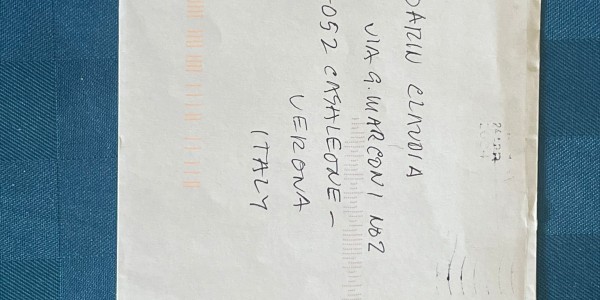 DARIN CLAUDIA
VIA G. MARCONI No2
-052 CASALEONE -
VERONA
ITALY